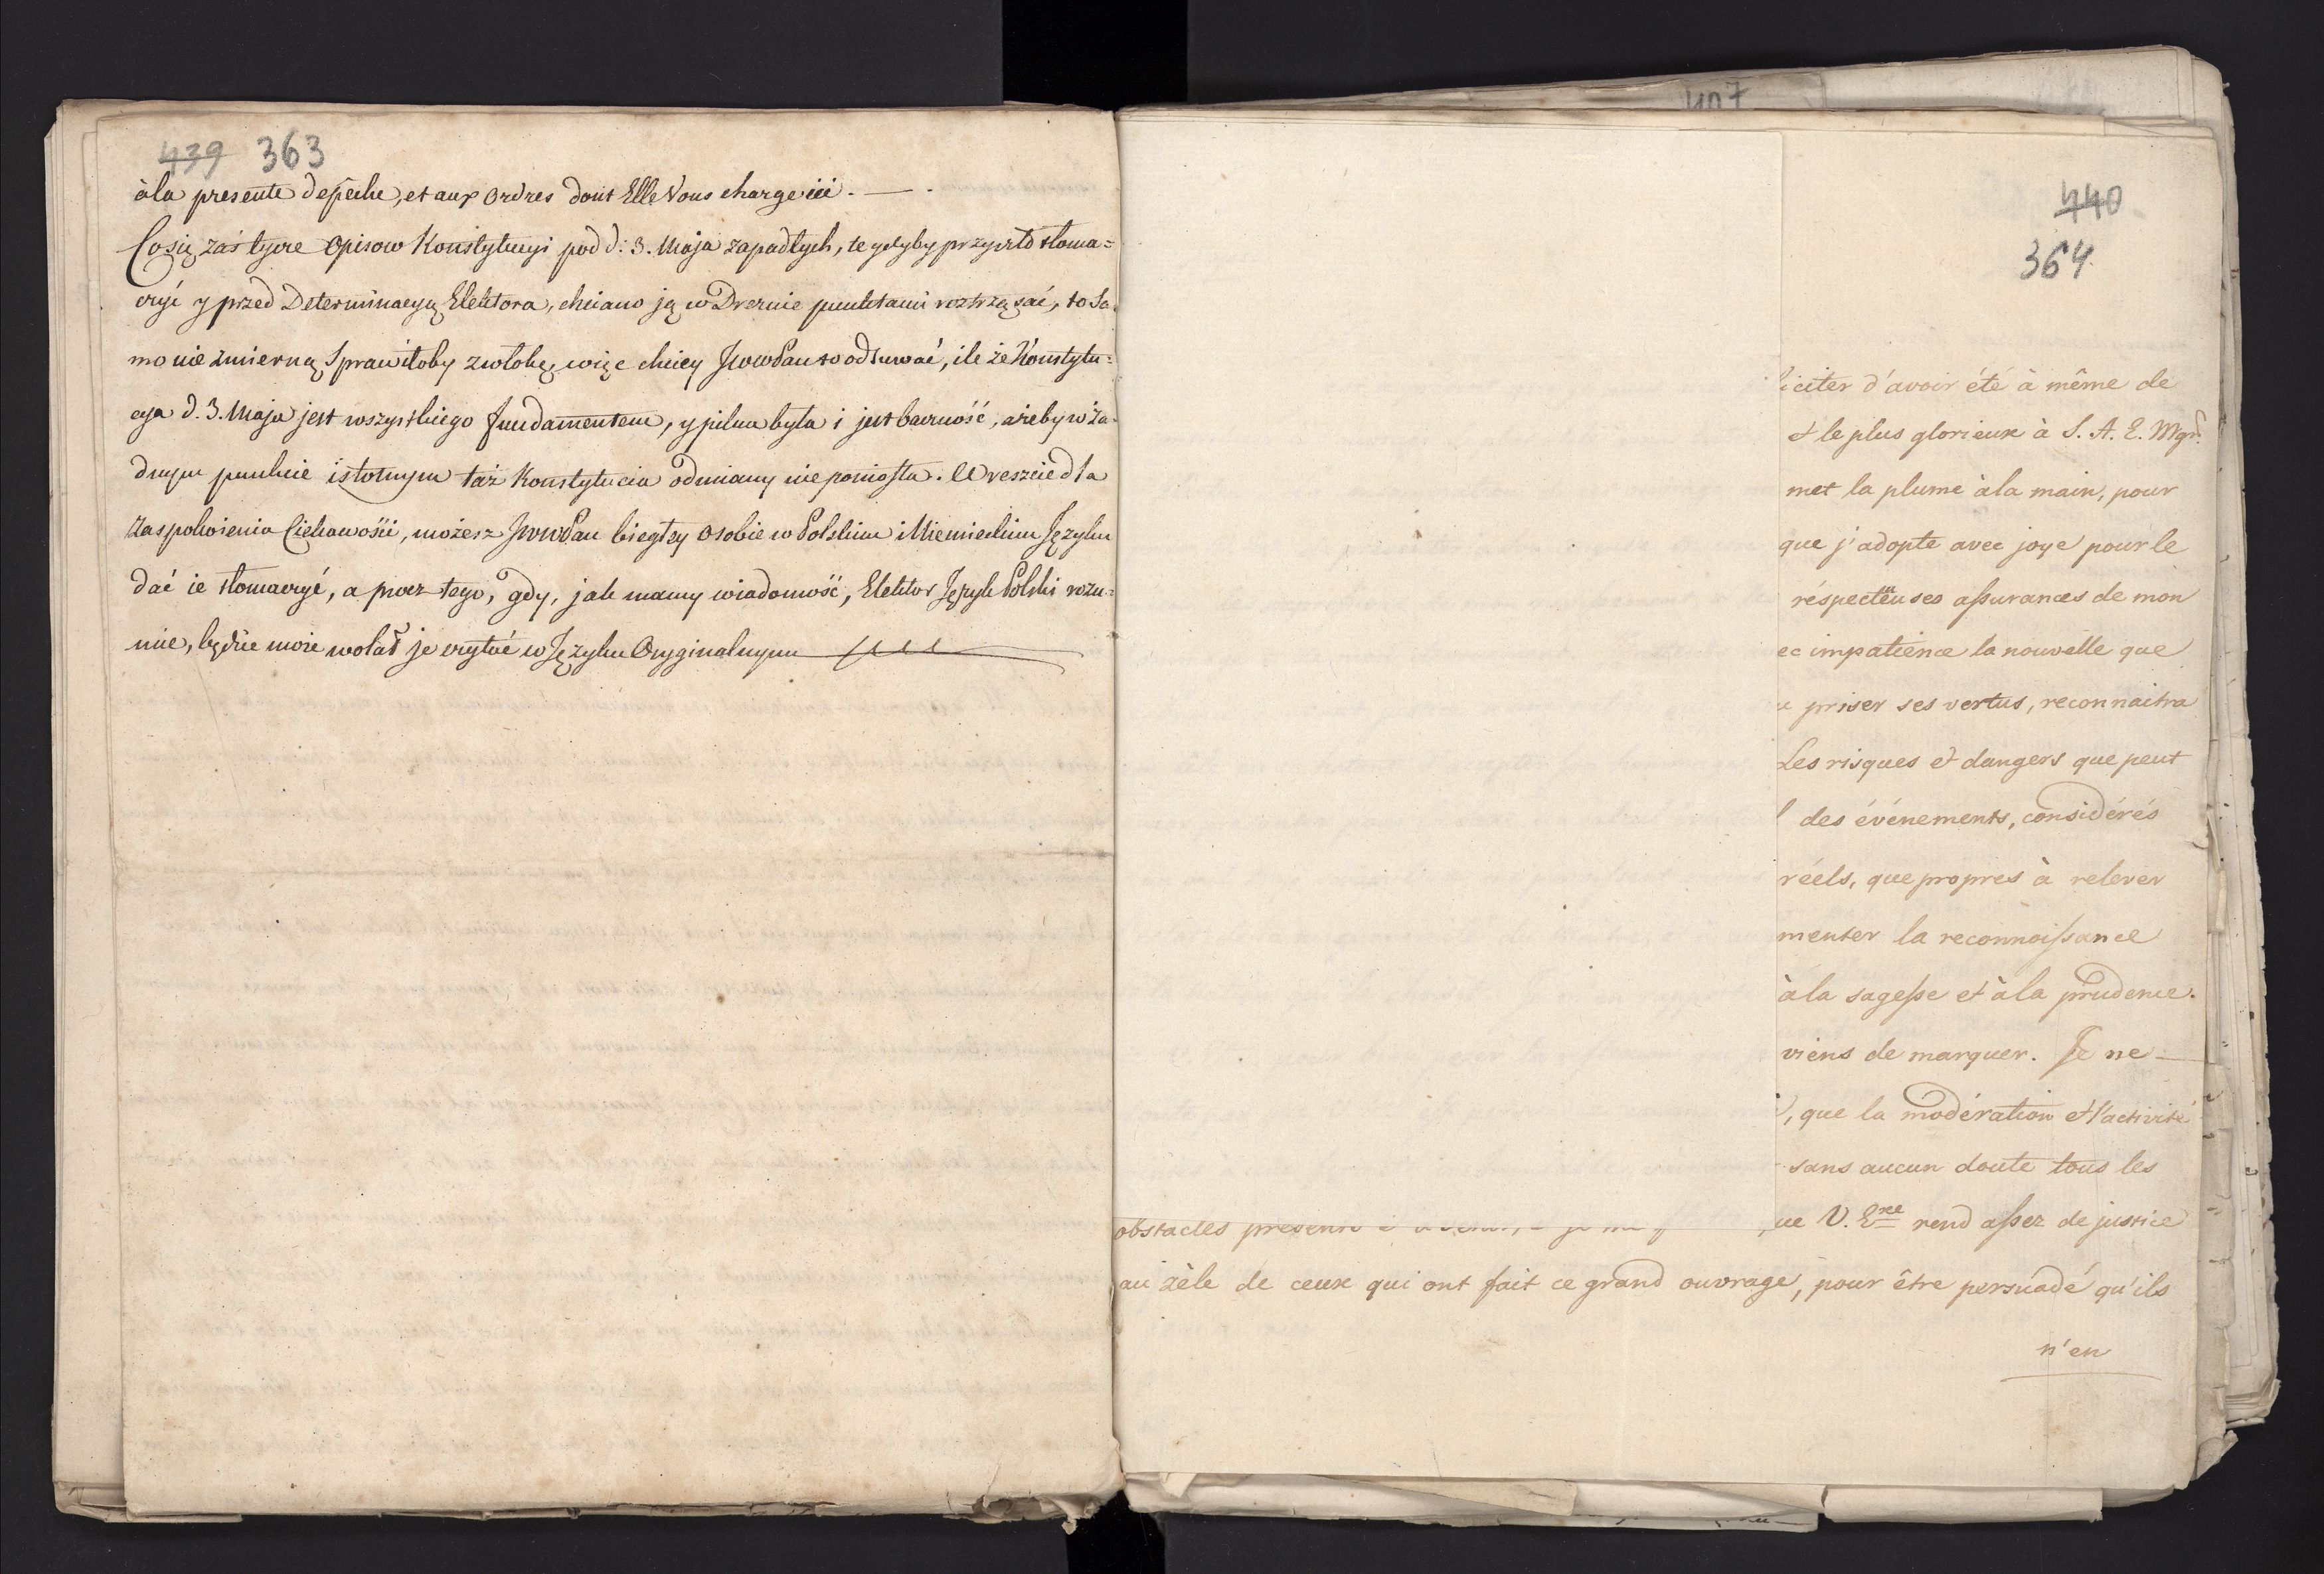 439 363
à la presente depêche, et aux ordres dont Elle Vous charge ici. — .
Co się zaś tycze Opisow Konstytucyi pod d: 3. Maja zapadłych, te gdyby przyszło tłoma=
czyć y przed Determinacyą Elektora, chciano ją w Dreznie punktami roztrząsać, to sa=
mo nie zmierną sprawiłoby zwłokę, więc chciey JWWPan to odsuwać, ile że Konstytu=
cya d. 3. Maja jest wszystkiego fundamentem, y pilna była i jest baczność, ażeby w ża=
dnym punkcie istotnym taż Konstytucia odmiany nie poniosła. Wreszcie dla
zaspokoienia Ciekawości, możesz JWWPan biegłey osobie w Polskim i Niemieckim Języku
dać ie tłomaczyć, a procz tego, gdy, jak mamy wiadomość, Elektor Język Polski rozu=
mie, będzie może wolał je czytać w Języku Oryginalnym
407
440
364
liciter d'avoir été à même de
et le plus glorieux à S. A. E. Mgr.
met la plume à la main, pour
que j'adopte avec joye pour le
réspectueuses assurances de mon
ec impatience la nouvelle que
priser ses vertus, reconnaitra
Les risques et dangers que peut
des événements, considérés
réels, que propres à relever
menter la reconnoissance
à la sagesse et à la prudence.
viens de marquer. Je ne
, que la modération et l'activité
sans aucun doute tous les
obstacles ue V. Exce rend assez de justice
au zèle de ceux qui ont fait ce grand ouvrage, pour être persuadé qu'ils
n'en